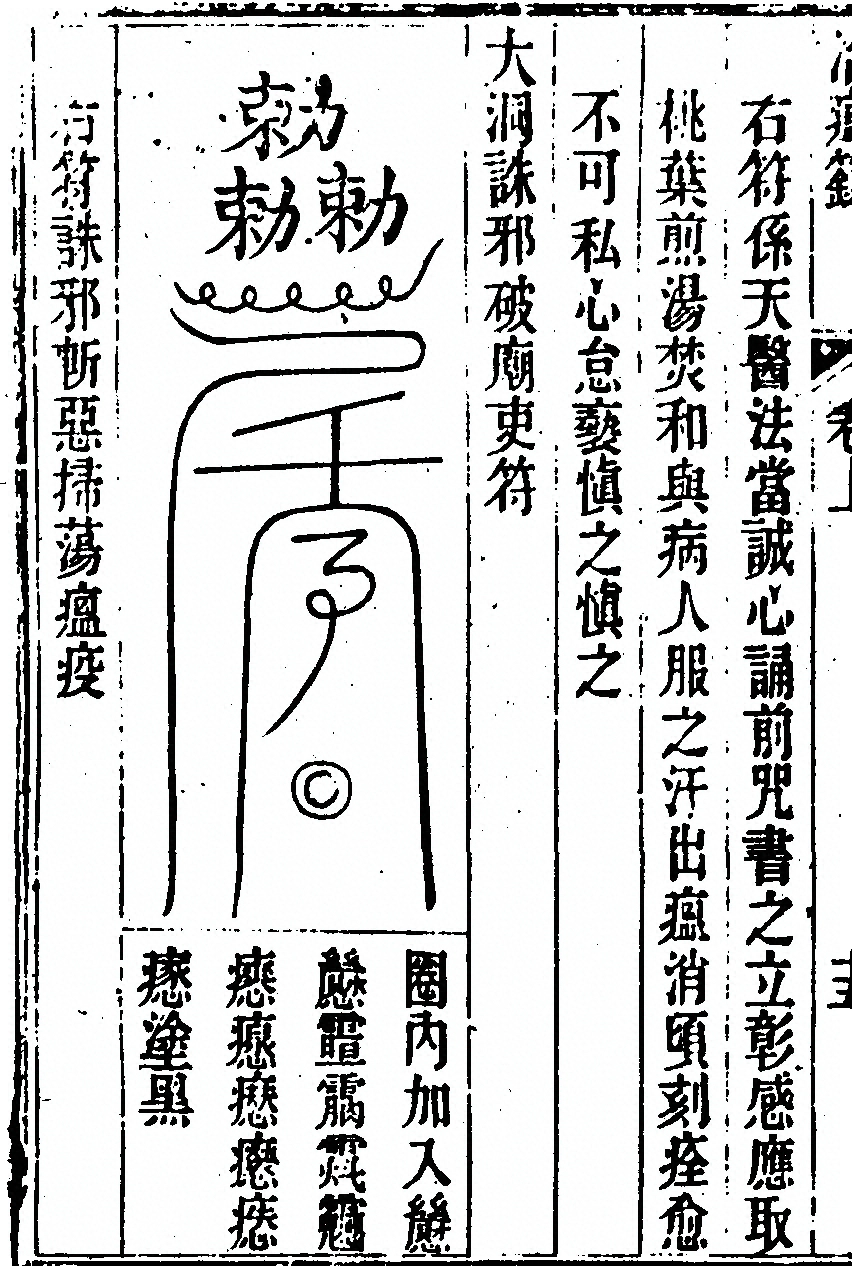 右符係天醫法當誠心誦前咒書之立彰感應取
桃葉煎湯焚和與病人服之汗出瘟消頃刻痊愈
不可私心怠褻慎之慎之
大洞誅邪破廟吏符
勅
勅勅
圈內加入
塗黑
右符誅邪斬惡掃蕩瘟疫